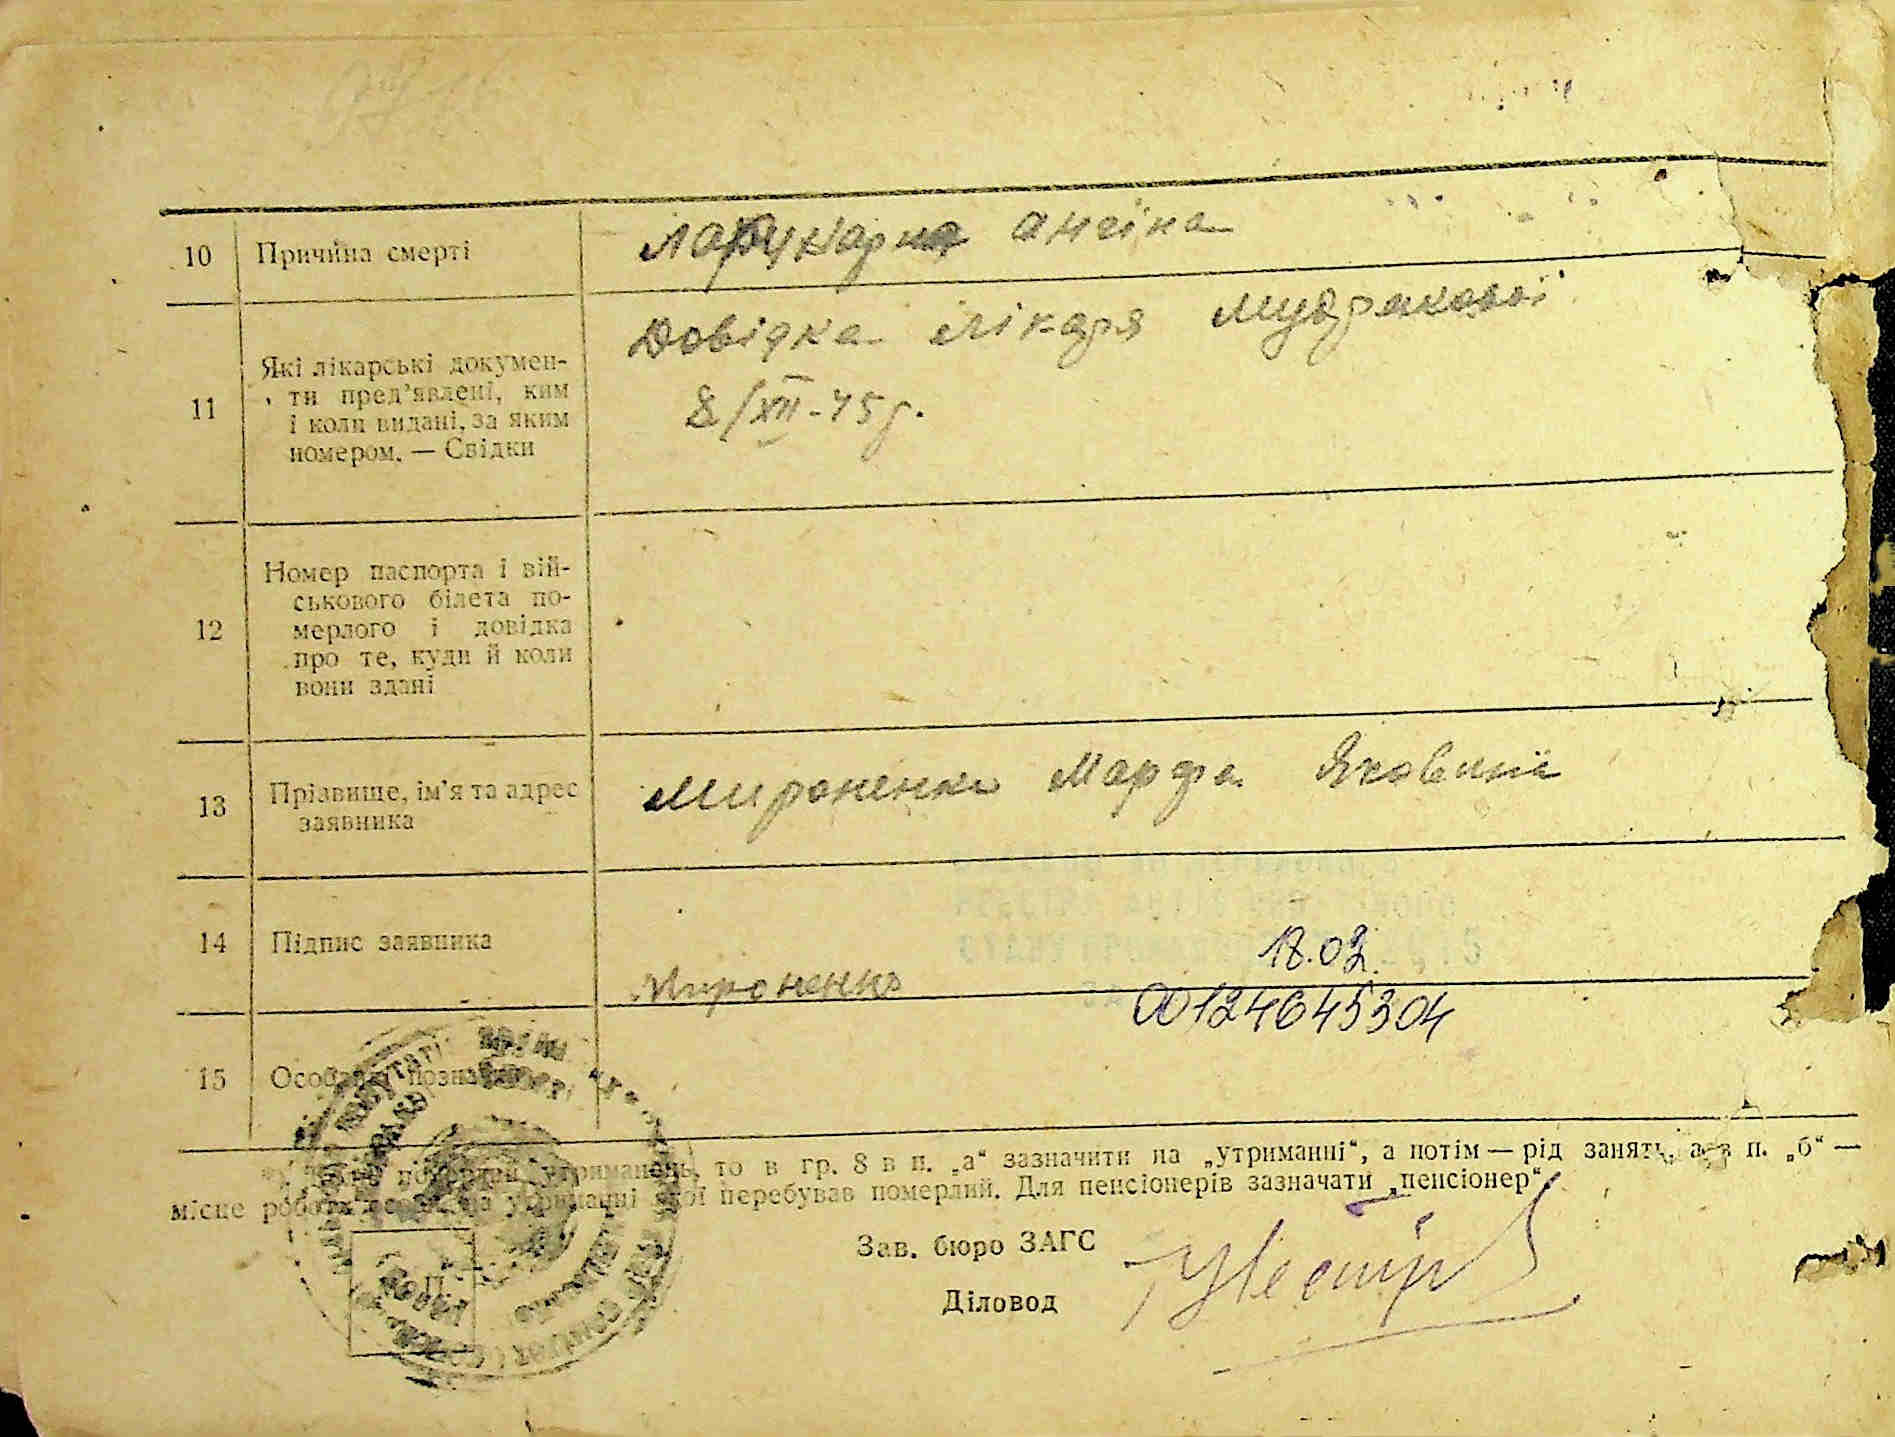 10 Причина смерті
ангіна
11 Які лікарські докумен-
ти пред’явлені, ким
і коли видані, за яким
номером. — Свідки
Довідка лікаря Мудракової
8/XII-45 р.
12 Номер паспорта і вій-
ськового білета по-
мерлого і довідка
про те, куди й коли
вони здані
13 Прізвище, ім’я та адрес
заявника
Мироненко Марфа Яковлівна
14 Підпис заявника
Мироненко
18.02.
00124645304
15 Особливі познач
утриманець, то в гр. 8 в п. „а“ зазначити на „утриманні“, а потім — рід занять, а в п. „б“ —
місце роботи утриманні якої перебував померлий. Для пенсіонерів зазначати „пенсіонер“.
Зав. бюро ЗАГС
Діловод